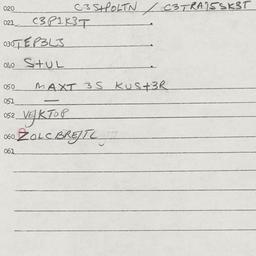 020 C3S+POLTN / C3TRA15SK3T
021 C3P1K3T
030 TEP3L3
040 S+UL
050 MAXT 3S KUS+3R
051 —
052 VEJKTOP
060 ZOLCBREJTL
061